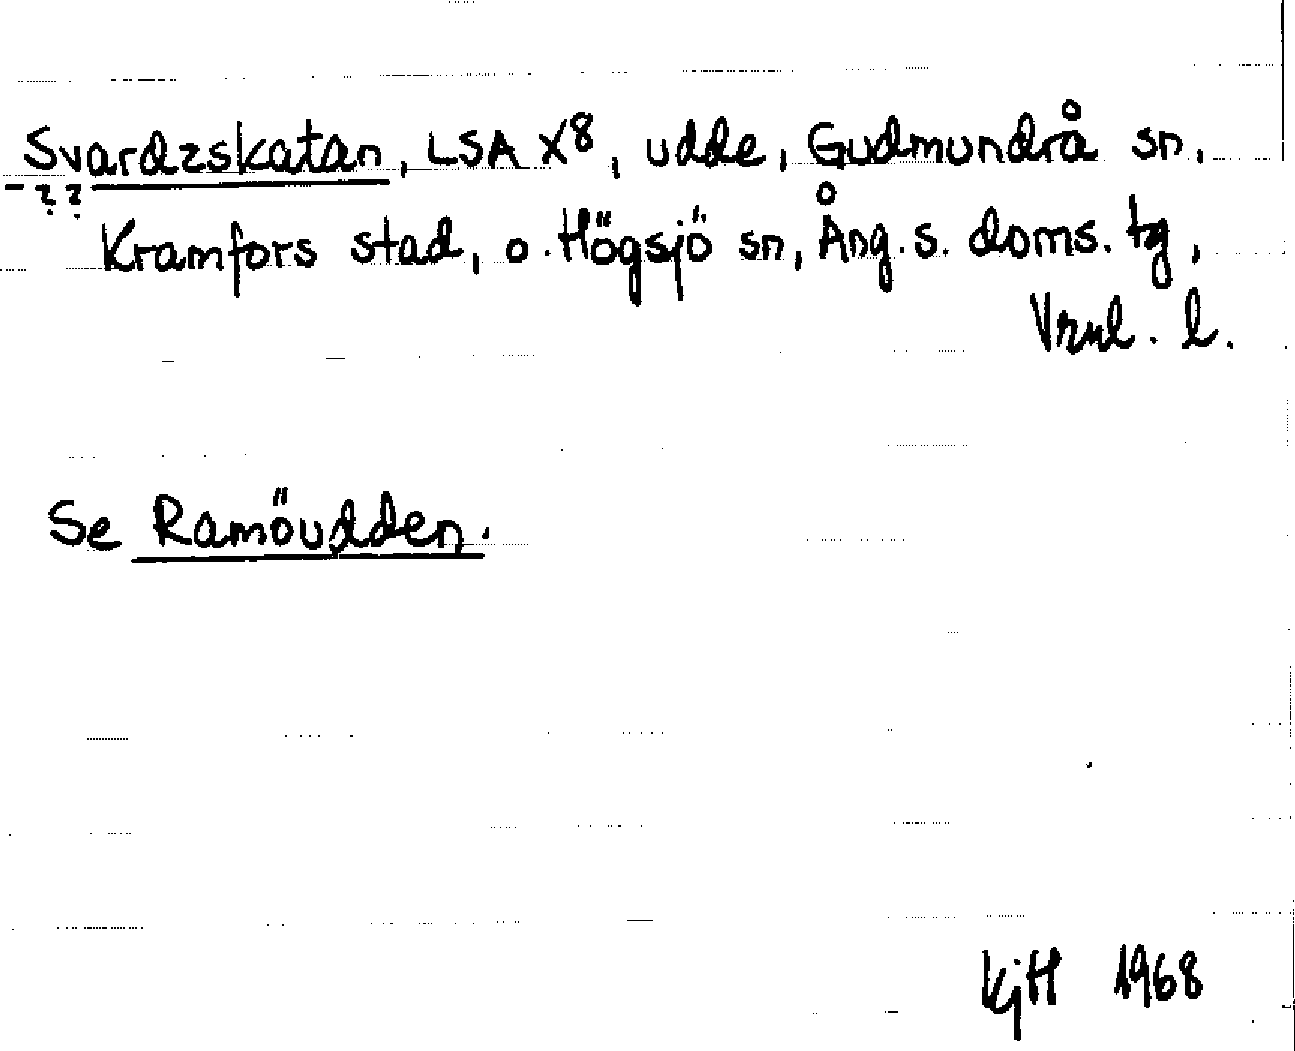 Svardzskatan, LSA X8, udde, Gudmundrå sn,
? ?
Kramfors stad, o. Högsjö sn, Ång. s. doms. tg,
Vrnl. l.
Se Ramöudden.
KjH 1968